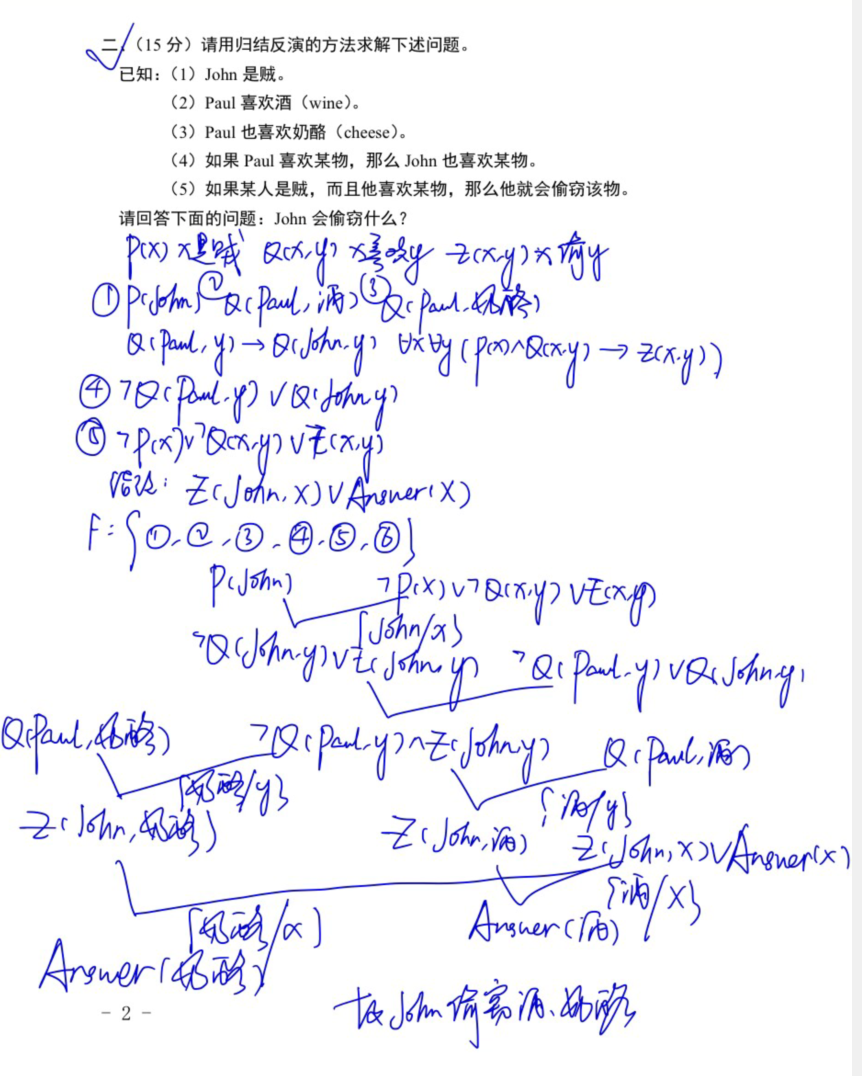 二、（15 分）请用归结反演的方法求解下述问题。
已知：（1）John 是贼。
（2）Paul 喜欢酒（wine）。
（3）Paul 也喜欢奶酪（cheese）。
（4）如果 Paul 喜欢某物，那么 John 也喜欢某物。
（5）如果某人是贼，而且他喜欢某物，那么他就会偷窃该物。
请回答下面的问题：John 会偷窃什么？
P(x) x是贼 Q(x,y) x喜欢y Z(x,y) x偷y
① P(John) ② Q(Paul, 酒) ③ Q(Paul, 奶酪)
Q(Paul, y) → Q(John, y) ∀x∀y (P(x)∧Q(x,y) → Z(x,y))
④ ¬Q(Paul, y) ∨ Q(John, y)
⑤ ¬P(x) ∨ ¬Q(x,y) ∨ Z(x,y)
假设: Z(John, x) ∨ Answer(x)
F: {①, ②, ③, ④, ⑤, ⑥}
P(John) ¬P(x) ∨ ¬Q(x,y) ∨ Z(x,y)
{John/x}
¬Q(John, y) ∨ Z(John, y) ¬Q(Paul, y) ∨ Q(John, y)
Q(Paul, 奶酪) ¬Q(Paul, y) ∧ Z(John, y) Q(Paul, 酒)
{奶酪/y} {酒/y}
Z(John, 奶酪) Z(John, 酒) Z(John, x) ∨ Answer(x)
{奶酪/x} {酒/x}
Answer(奶酪) Answer(酒)
故 John 偷窃酒、奶酪
- 2 -